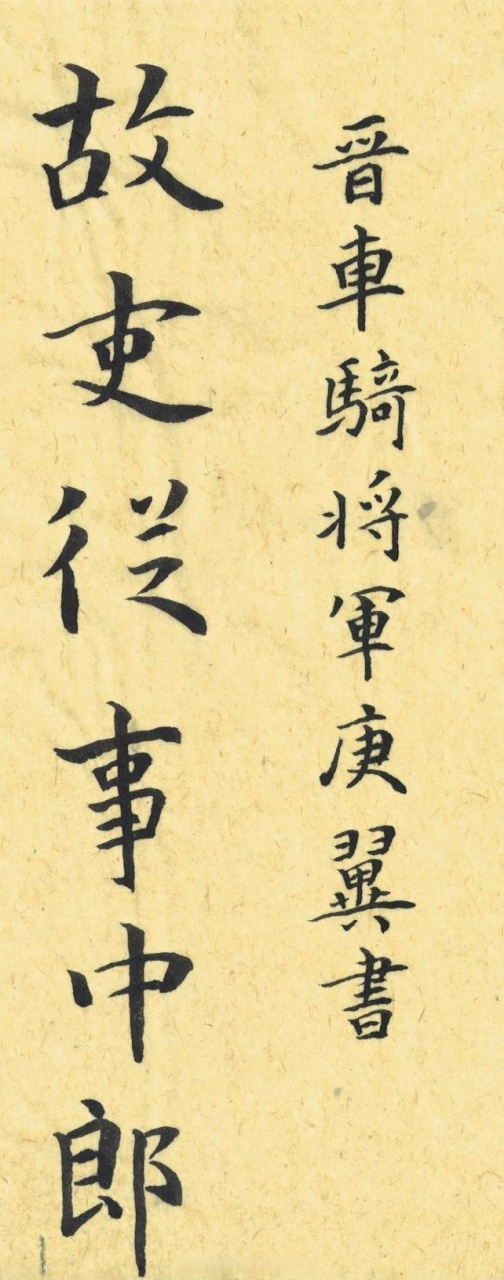 晉車騎将軍庾翼書
故吏從事中郎